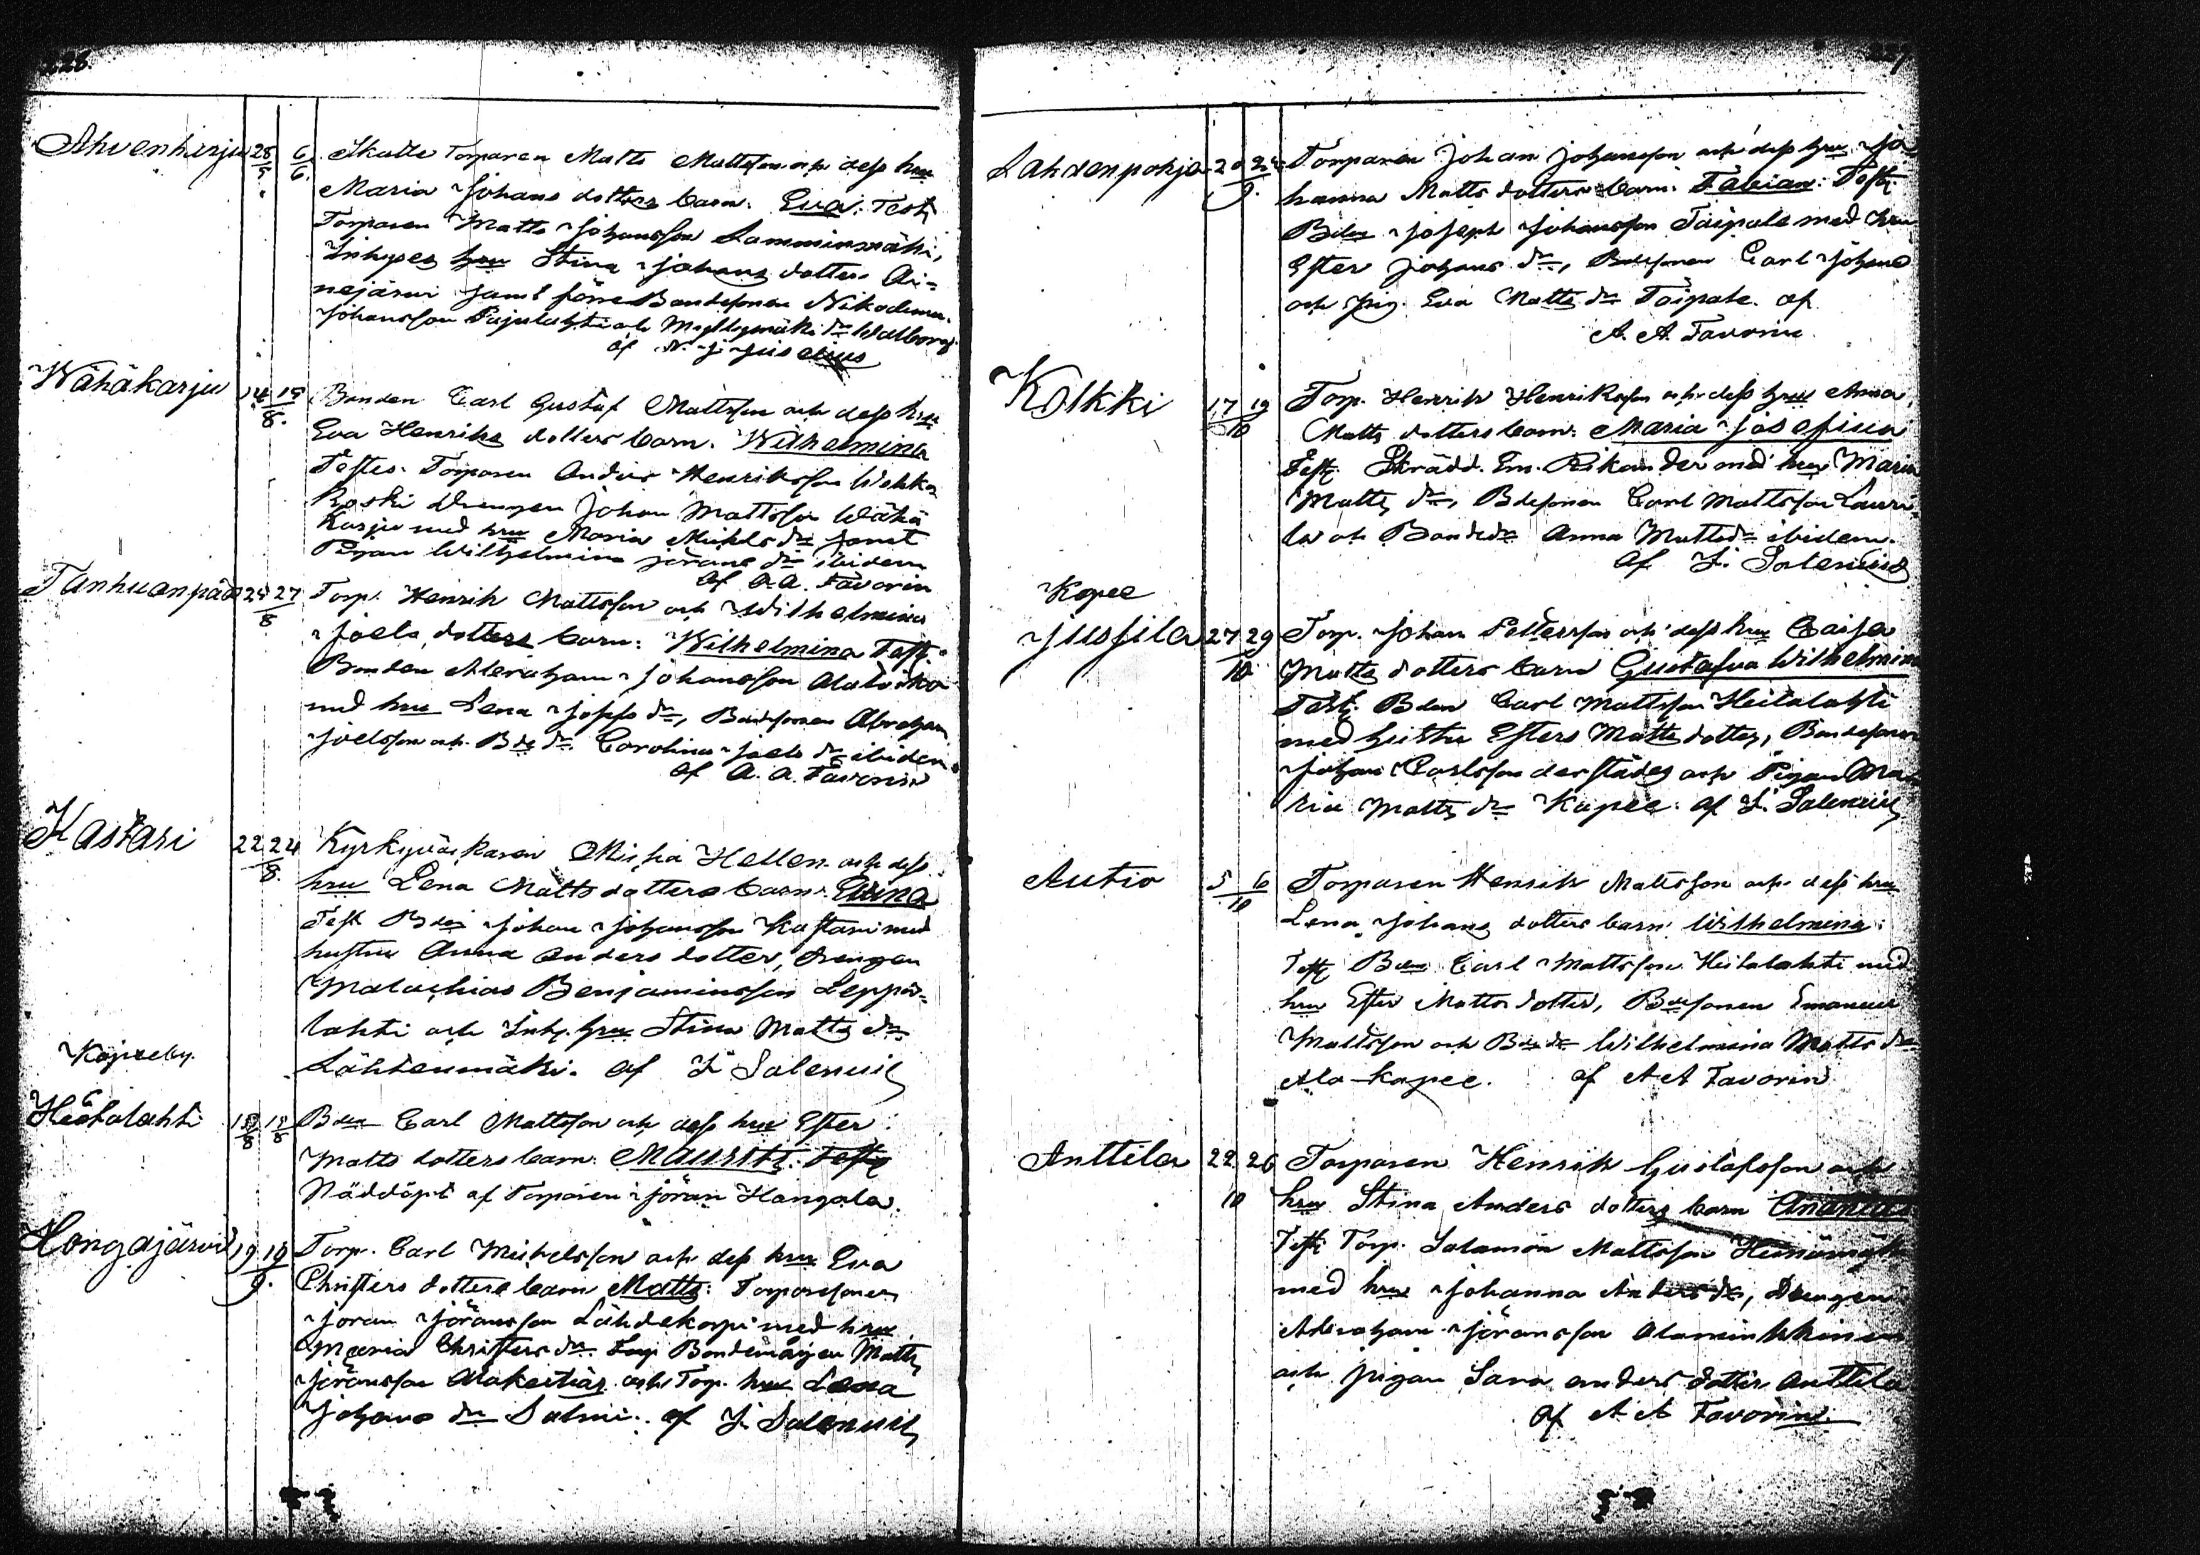 226.
Ahvenharju 28/5 6/6 Skatte Torparen Matts Mattsson och dess hru
Maria Johans dotters barn. Eva. Test:
Torparen Matts Johansson Lamminmäki,
Inhyses hru Stina Johans dotter Ai-
nejärvi samt förre Bondesonen Nikodemus
Johansson Pajulahti och Myllymäki dr Walborg
af N. J. Juselius
Wähäkarju 14 19/8. Bonden Carl Gustaf Mattsson och dess hru
Eva Henriks dotters barn. Wilhelmina
Testes. Torparen Anders Henriksson Wehka
Koski Drengen Johan Mattsson Wähä
Karju med hru Maria Mickels dr samt
Pigan Wilhelmina Jörans dr ibidem
af A A. Favorin
Tanhuanpää 25 27/8 Torp. Henrik Mattsson och Wilhelmina
Joels dotters barn: Wilhelmina Test:
Bonden Abraham Johansson
med hru Lena Josefs dr, Bondesonen Abraham
Joelsson och Bde dr Carolina Joels dr ibidem.
af A. A. Favorin
Kastari 22 24/8. Kyrkoväktaren Micha Hellen och dess
hru Lena Matts dotters barn. Evina
Test Bden Johan Johansson Kastari med
hustru Anna Anders dotter, Drengen
Malachias Benjaminsson Leppä-
lahti och Inh. hru Stina Matts dr
Lähteenmäki. af F. Salenius
Köpeeby.
Heitalahti 18/8 18/8 Bden Carl Mattsson och dess hru Ester
Matts dotters barn. Mauritz. Test
Nöddöpt af Torparen Jöran Hangala.
Hongajärvi 19 19/9. Torp. Carl Mickelsson och dess hru Eva
Christers dotters barn Matts: Torparesonen
Jöran Jöransson Lähdekorpi med hru
Maria Christers dr. Bondemågen Matts
Jöransson och Torp. hru Lena
Johans dr Salmi. af F. Salenius
227
Lahdenpohja 20 22/9. Torparen Johan Johansson och dess hru Jo-
hanna Matts dotters barn. Fabian: Test:
Bden Joseph Johansson Taipale med hru
Ester Johans dr, Bdesonen Carl Johans
och pig. Eva Matts dr Taipale. af
A. A. Favorin
Kolkki 17 19/10 Torp. Henrik Henriksson och dess hru Anna
Matts dotters barn: Maria Josefina
Test: Skrädd. Em. Rikander med hru Maria
Matts dr, Bdesonen Carl Mattsson Lauri-
la och Bondedr Anna Mattsdr ibidem.
af F. Salenius
Kopee
Jussila 27 29/10 Torp. Johan Pettersson och dess hru Caisa
Matts dotters barn Gustafva Wilhelmina
Test: Bden Carl Mattsson Heitalahti
med hustru Esters Matts dotter, Bondesonen
Johan Carlsson derstädes och Pigan Ma-
ria Matts dr Kopee. af F. Salenius
Autio 5 6/10 Torparen Henrik Mattsson och dess hru
Lena Johans dotters barn Wilhelmina:
Test: Bden Carl Mattsson Heitalahti med
hru Ester Matts dotter, Bdesonen Emanuel
Mattsson och Bde dr Wilhelmina Matts dr
Ala-Kopee. af A A Favorin
Anttila 22 26/10 Torparen Henrik Gustafsson och
hru Stina Anders dotters barn
Test: Torp. Salomon Mattsson
med hru Johanna Anders dr, Drengen
Abraham Jöransson
och pigan Sara Anders dotter Anttila
af A A Favorin.